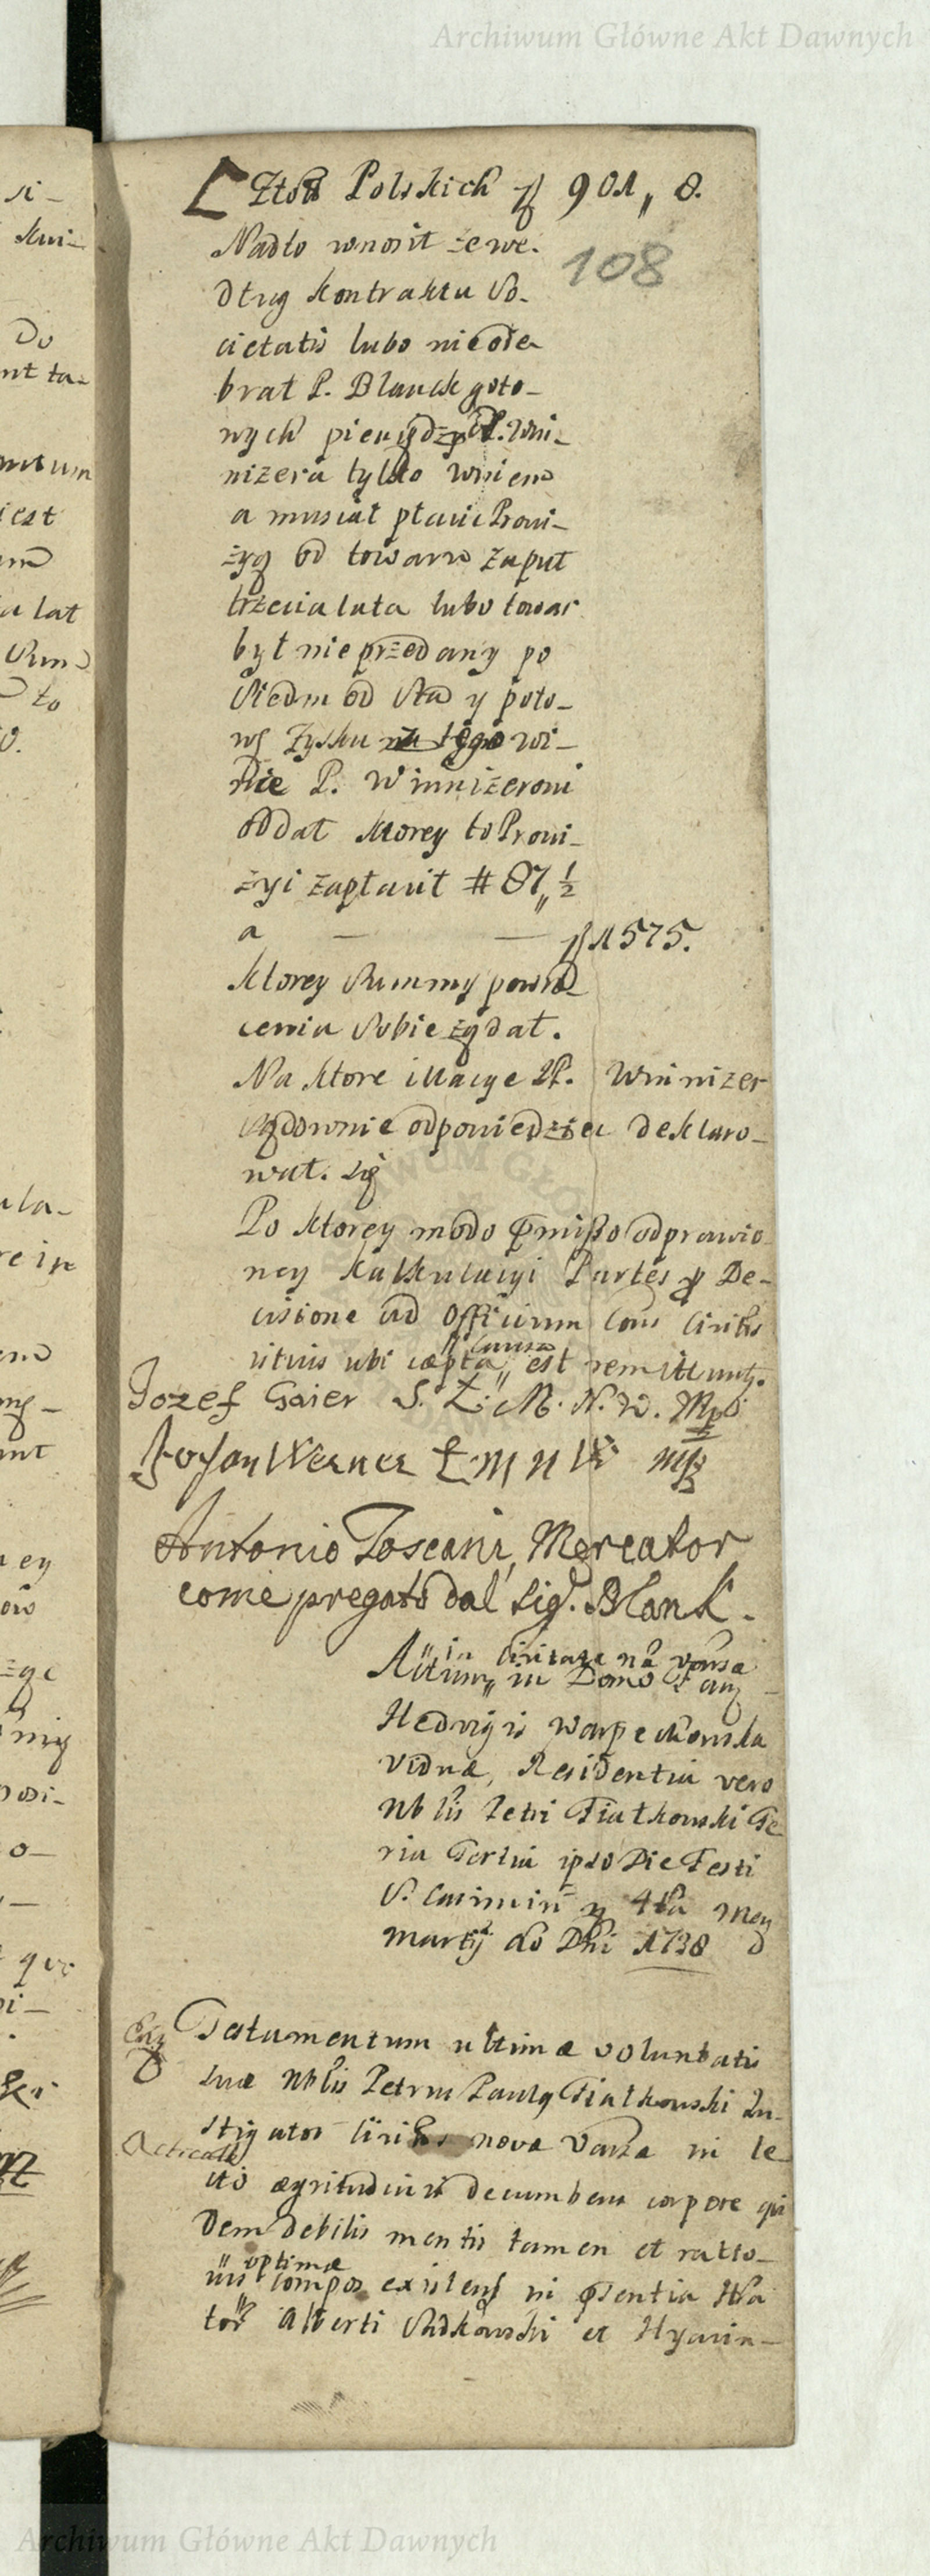 Archiwum Główne Akt Dawnych
Złotych Polskich f 901,, 8.
108
Nadto wnosił że we-
dług kontraktu So-
cietatis lubo nie ode-
brał P. Blanck goto-
wych pieniędzy od P. Win-
nizera tylko winem
a musiał płacić Prowi-
zyą od towaru za puł
trzecia lata lubo towar
był nie przedany po
Siedm od Sta y poło-
wę Zysku na tego wi-
nie P. Winnizerowi
oddał ktorey to Prowi-
zyi zapłacił # 87,, ½
a — — f 1575.
ktorey Summy powro-
cenia Sobie żądał.
Na ktore illacye P. Winnizer
Sądownie odpowiedzieć deklaro-
wał. się
Po ktorey modo pmisso odprawio-
ney kalkulacyi Partes p De-
cisione ad Officium Cons Civilis
citius ubi cæpta,, causa est remittunt.
Jozef Gaier S. Ł. M. N. W. Mp
Jan Werner Ł M N W mp
Antonio Toscani, Mercator
come pregato dal Sig. Blank.
Actum,, in Civitate na Varsæ in Domo Fam
Hedvigis Warpechowska
viduæ, Residentia vero
Nblis Petri Fiatkowski Fe
ria Tertia ipso Die Festi
S. Casimiri 4ta Men
Martij Ao Dni 1738
Testamentum ultimæ voluntatis
suæ Nblis Petrus Paulus Fiatkowski In-
stigator Civilis novæ Varsæ in le
Acticatt
cto ægritudinis decumbens corpore qui
dem debilis mentis tamen et ratio-
nis optimæ compos existens in psentia
Alberti Sudkowski et Hyacin-
Archiwum Główne Akt Dawnych